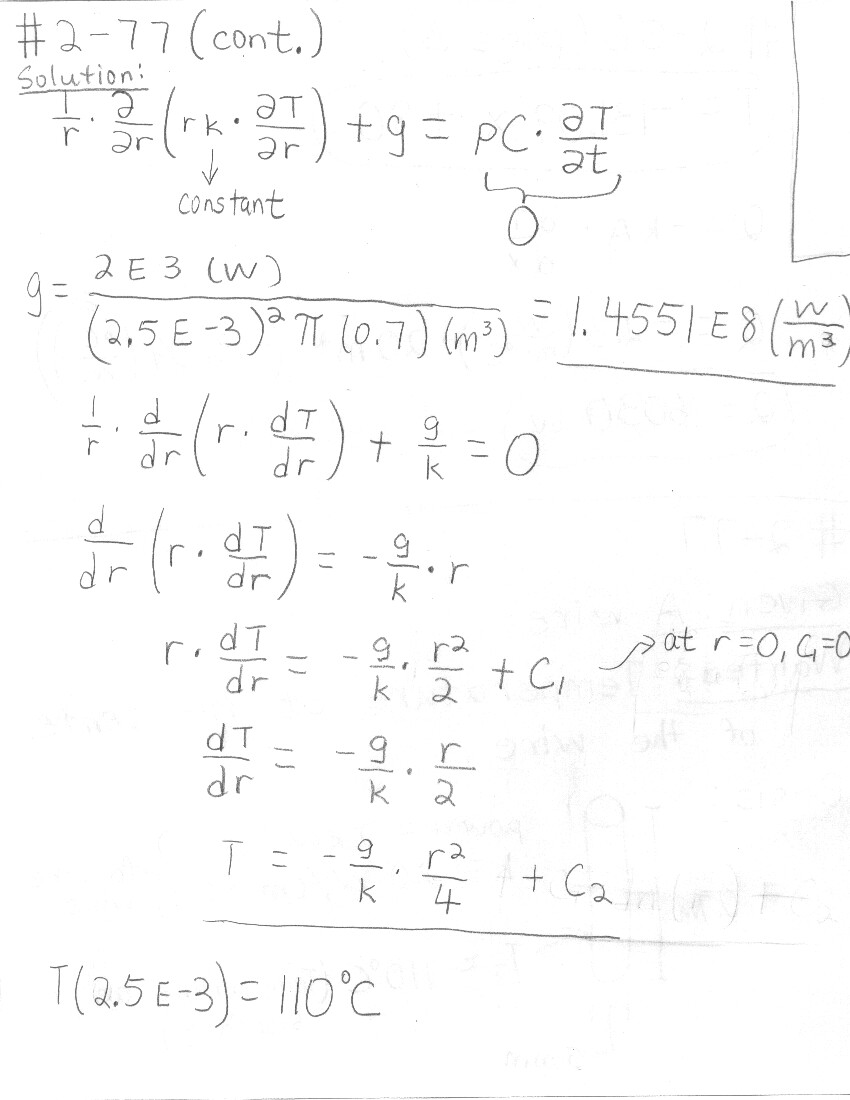 #2-77 (cont.)
Solution:
1/r · ∂/∂r (rk · ∂T/∂r) + g = ρC · ∂T/∂t
constant
0
g = 2E3 (W) / (2.5E-3)² π (0.7) (m³) = 1.4551E8 (W/m³)
1/r · d/dr (r · dT/dr) + g/k = 0
d/dr (r · dT/dr) = -g/k · r
r · dT/dr = -g/k · r²/2 + C₁ → at r=0, C₁=0
dT/dr = -g/k · r/2
T = -g/k · r²/4 + C₂
T(2.5E-3) = 110°C